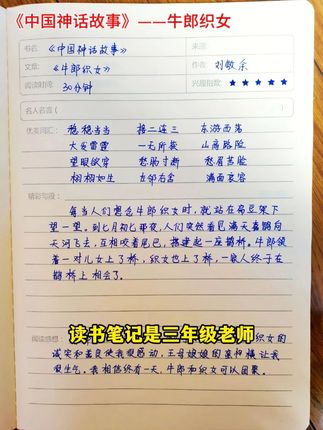 《中国神话故事》——牛郎织女
书名: 《中国神话故事》 来源:
文章: 《牛郎织女》 作者: 刘敬余
阅读时间: 30分钟 兴趣指数: ★★★★★
名人名言:
优美词汇: 稳稳当当 接二连三 东游西荡
大发雷霆 一无所获 山高路险
望眼欲穿 愁肠寸断 愁眉苦脸
栩栩如生 左邻右舍 满面哀容
精彩句段:
每当人们想念牛郎织女时,就站在葡萄架下
望一望。到七月初七那夜,人们突然看见满天喜鹊向
天河飞去,互相咬着尾巴,搭建起一座鹊桥。牛郎领
着一对儿女上了桥,织女也上了桥,一家人终于在
鹊桥上相会了。
阅读感想:
读书笔记是三年级老师
织女的
诚实和善良使我很感动,王母娘娘的蛮横让我
很生气。我相信终有一天,牛郎和织女可以团聚。